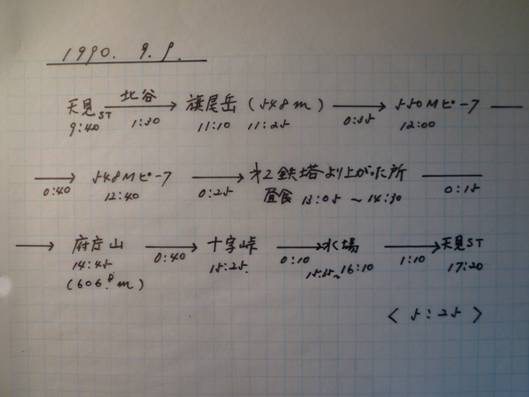 1990. 9. 9.
天見ST 北谷 → 旗尾岳 (548m) → 550Mピーク
9:40 1:30 11:10 11:25 0:35 12:00
→ 548Mピーク → オ2鉄塔より上がった所
0:40 12:40 0:25 昼食 13:05 ~ 14:30 0:15
→ 府庁山 → 十字峠 → 水場 → 天見ST
14:45 0:40 15:25 0:10 15:35~16:10 1:10 17:20
(606.9m)
< 5:25 >